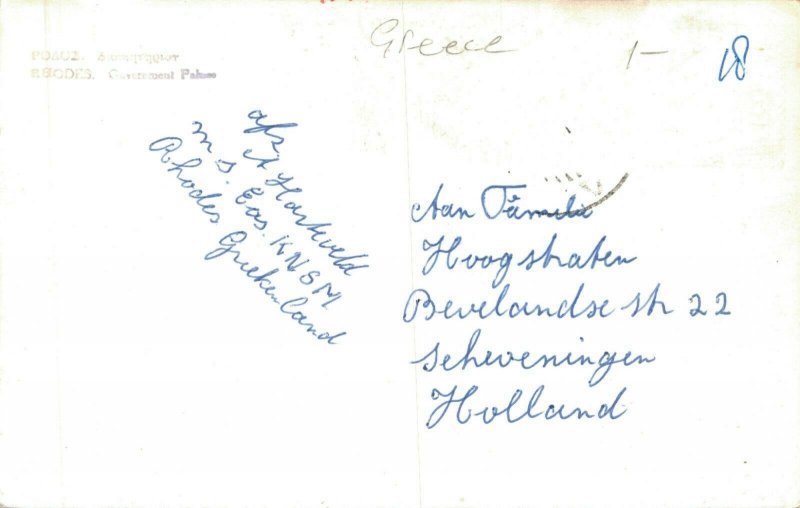 Greece
1-
18
ΡΟΔΟΣ. Διοικητήριον
RHODES. Government Palace
afz
A Harteveld
m s. Eos. KNSM
Rhodes Griekenland
Aan Familie
Hoogstraten
Bevelandse str 22
Scheveningen
Holland